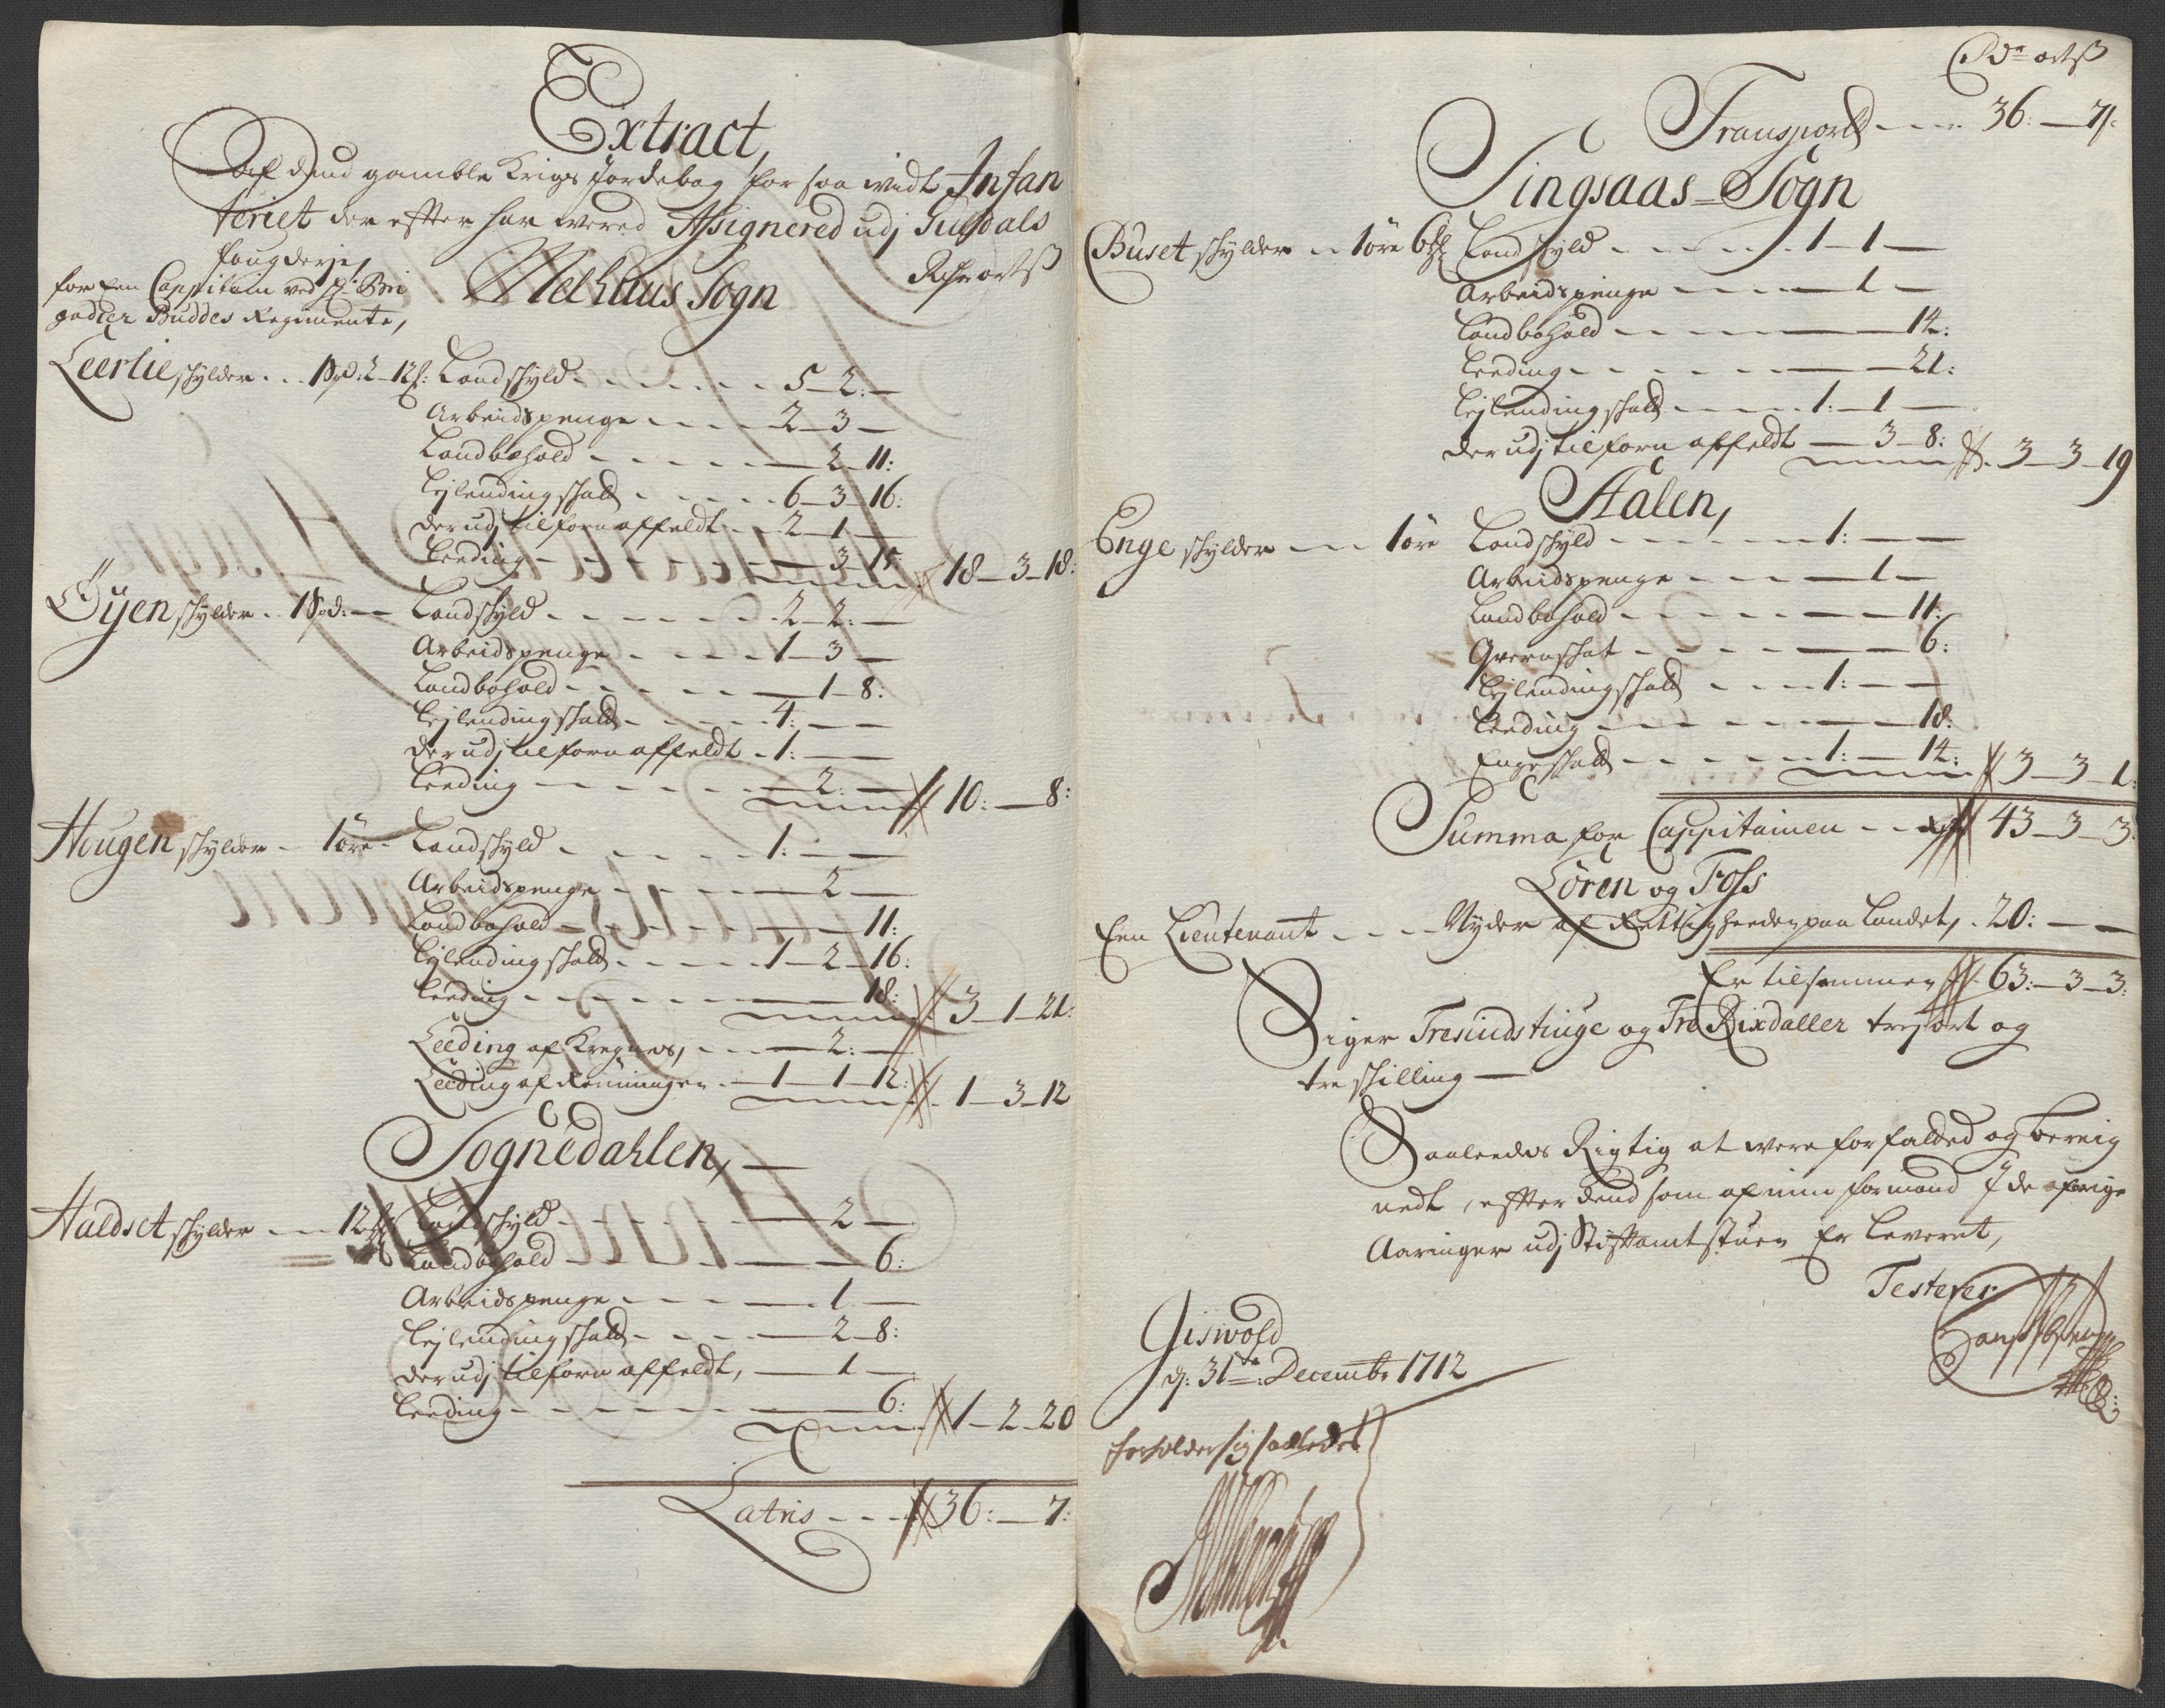 Extract,
Af dend gamble Krigs Jordebog for saa vidt Infan
teriet der efter har vered Assignered udj Guldals
Fougderje,
for Een Cappitain ved Hr. Bri
gadier Buddes Regimente,
Melhuus Sogn
Rdr ort ß
Leerlie schylder .. 1 Spd: 2 - 12 f: Landschyld - - - 5 - 2: -
Arbeidspenge - - - 2 - 3 -
Landbohold - - - 2 - 11:
Lejlendingschatt - - - 6 - 3 - 16:
Der udj tilforn affeldt - 2 - 1 -
Leeding - - - 3 - 15 18 - 3 - 18:
Öyen schylder .. 1 Spd: - Landschyld - - - 2 - 2: -
Arbeidspenge - - - 1 - 3 -
Landbohold - - - 1 - 8:
Lejlendingschatt - - - 4: - -
Der udj tilforn affeldt - 1: - -
Leeding - - - 2: - 10: - 8:
Hougen schylder - 1 öre - Landschyld - - - 1: - -
Arbeidspenge - - - 2 -
Landbohold - - - 11:
Lejlendingschatt - - - 1 - 2 - 16:
Leeding - - - 18: 3 - 1 - 21:
Leeding af Kregnes, - - - 2: -
Leeding af Rønningen - 1 - 1 - 12: 1 - 3 - 12
Sognedahlen, -
Haldset schylder - - 12 Landschyld - - - 2 -
Landbohold - - - 6:
Arbeidspenge - - - 1 -
Lejlendingschatt - - - 2 - 8:
Der udj tilforn affeldt, - 1 -
Leeding - - - 6: 1 - 2 - 20
Latris - - - 36: - 7:
Rdr ort ß
Transport - - - 36: - 7:
Singsaas - Sogn
Buset schylder - 1 öre 6 Landschyld - - - 1 - 1 -
Arbeidspenge - - - 1 -
Landbohold - - - 14:
Leeding - - - 21:
Lejlendingschatt - - - 1: - 1 -
Der udj tilforn affeldt - 3 - 8: 3 - 3 - 19
Aalen,
Enge schylder - - 1 öre Landschyld - - - 1: - -
Arbeidspenge - - - 1 -
Landbohold - - - 11:
Qvernschat - - - 6:
Lejlendingschatt - - - 1: - -
Leeding - - - 18:
Engeschatt - - - 1: - 14: 3 - 3 - 1:
Summa for Cappitainen - - 43 - 3 - 3:
Lören og Foss
Een Lieutenant - - - Nyder af Rettigheeden paa Landet, . 20: - -
Er tilsammen 63: - 3 - 3:
Siger Tresindstiuge og Tre Rixdaller trej ort og
tre schilling -
Saaleedes Rigtig at vere forfalded og bereig
nedt, efter dend som af min formand J de afvige
Aaringer udj Stiftamtstuen Er leveret,
Testerer
Giswold
d: 31te Decembr 1712
forholder sig saaledes